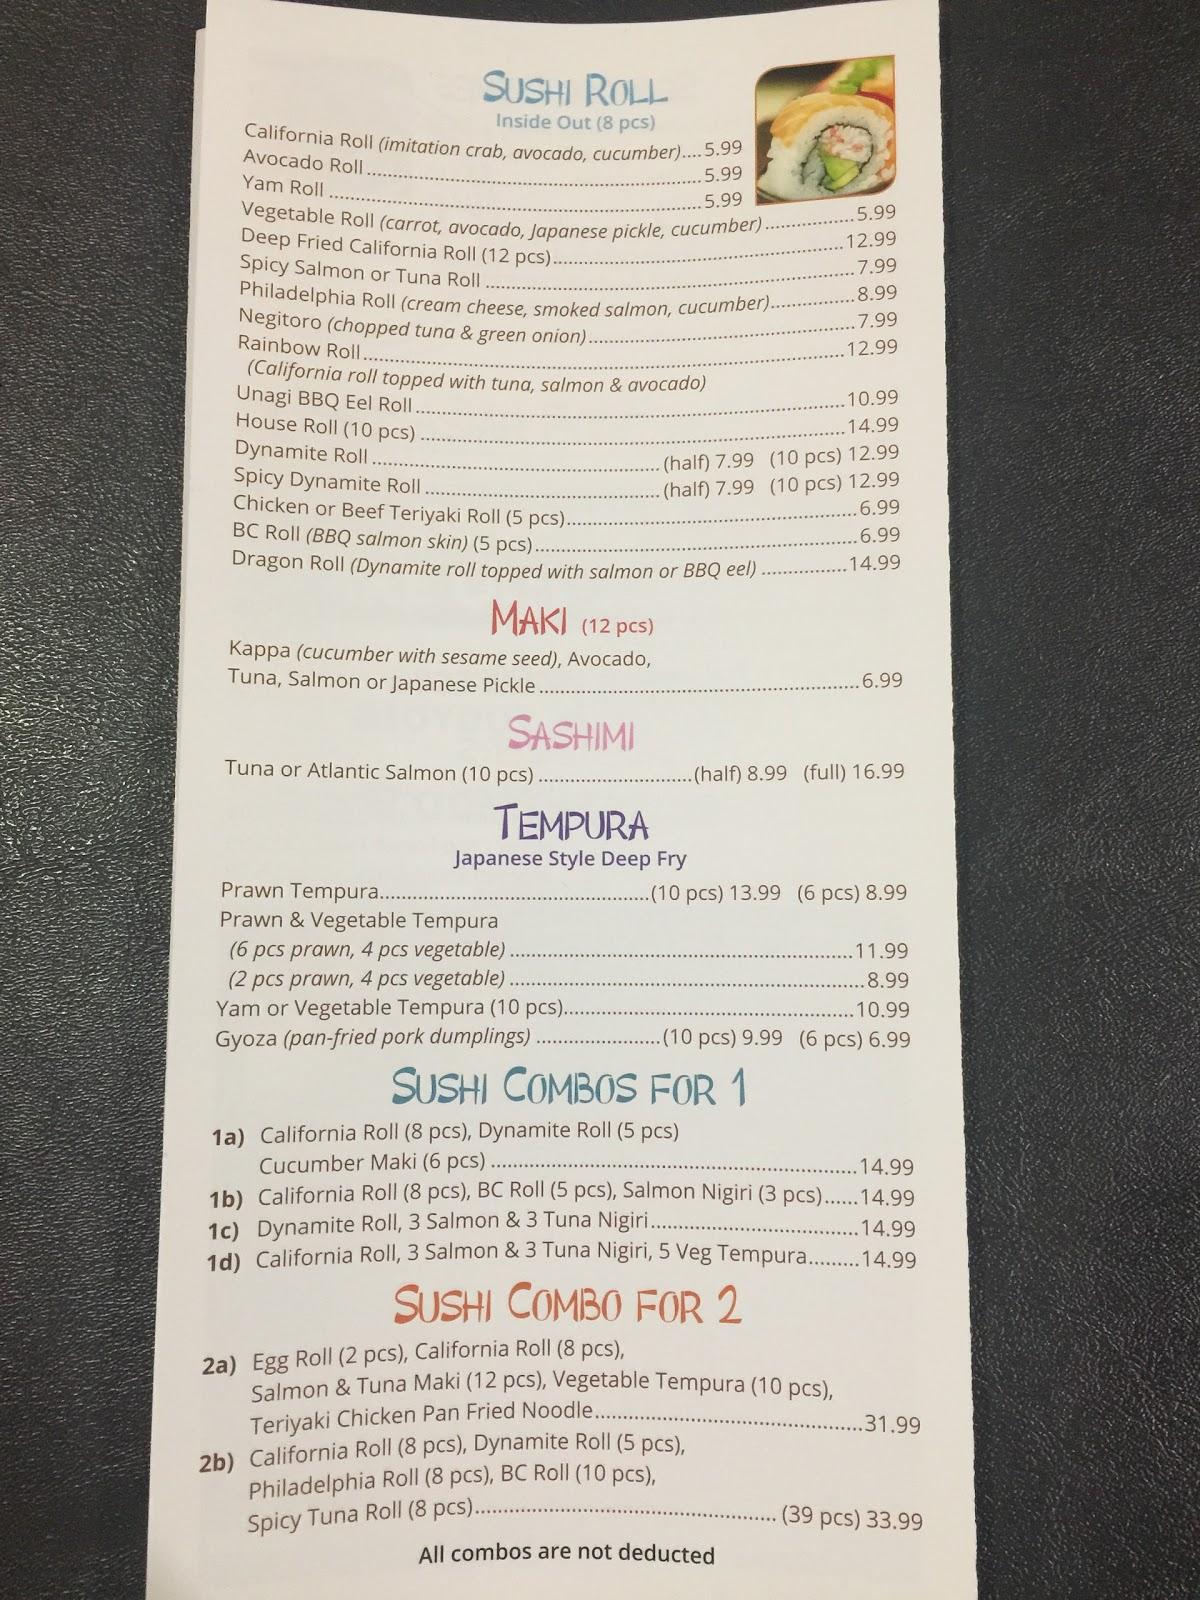 SUSHI ROLL
Inside Out (8 pcs)
California Roll (imitation crab, avocado, cucumber)....5.99
Avocado Roll....5.99
Yam Roll....5.99
Vegetable Roll (carrot, avocado, Japanese pickle, cucumber)....5.99
Deep Fried California Roll (12 pcs)....12.99
Spicy Salmon or Tuna Roll....7.99
Philadelphia Roll (cream cheese, smoked salmon, cucumber)....8.99
Negitoro (chopped tuna & green onion)....7.99
Rainbow Roll....12.99
(California roll topped with tuna, salmon & avocado)
Unagi BBQ Eel Roll....10.99
House Roll (10 pcs)....14.99
Dynamite Roll....(half) 7.99 (10 pcs) 12.99
Spicy Dynamite Roll....(half) 7.99 (10 pcs) 12.99
Chicken or Beef Teriyaki Roll (5 pcs)....6.99
BC Roll (BBQ salmon skin) (5 pcs)....6.99
Dragon Roll (Dynamite roll topped with salmon or BBQ eel)....14.99
MAKI (12 pcs)
Kappa (cucumber with sesame seed), Avocado,
Tuna, Salmon or Japanese Pickle....6.99
SASHIMI
Tuna or Atlantic Salmon (10 pcs)....(half) 8.99 (full) 16.99
TEMPURA
Japanese Style Deep Fry
Prawn Tempura....(10 pcs) 13.99 (6 pcs) 8.99
Prawn & Vegetable Tempura
(6 pcs prawn, 4 pcs vegetable)....11.99
(2 pcs prawn, 4 pcs vegetable)....8.99
Yam or Vegetable Tempura (10 pcs)....10.99
Gyoza (pan-fried pork dumplings)....(10 pcs) 9.99 (6 pcs) 6.99
SUSHI COMBOS FOR 1
1a) California Roll (8 pcs), Dynamite Roll (5 pcs)
Cucumber Maki (6 pcs)....14.99
1b) California Roll (8 pcs), BC Roll (5 pcs), Salmon Nigiri (3 pcs)....14.99
1c) Dynamite Roll, 3 Salmon & 3 Tuna Nigiri....14.99
1d) California Roll, 3 Salmon & 3 Tuna Nigiri, 5 Veg Tempura....14.99
SUSHI COMBO FOR 2
2a) Egg Roll (2 pcs), California Roll (8 pcs),
Salmon & Tuna Maki (12 pcs), Vegetable Tempura (10 pcs),
Teriyaki Chicken Pan Fried Noodle....31.99
2b) California Roll (8 pcs), Dynamite Roll (5 pcs),
Philadelphia Roll (8 pcs), BC Roll (10 pcs),
Spicy Tuna Roll (8 pcs)....(39 pcs) 33.99
All combos are not deducted